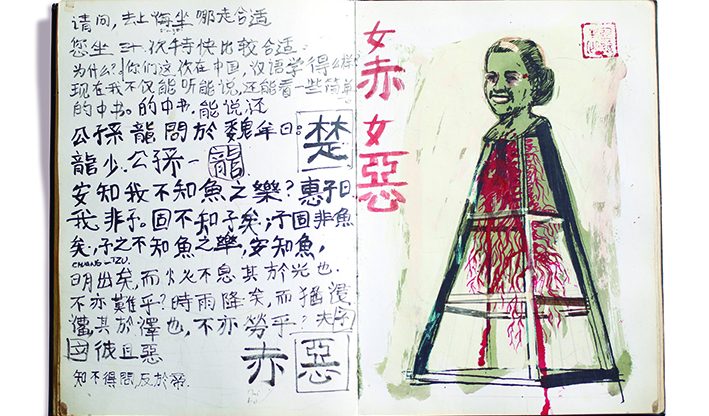 请问,去上海坐哪走合适
您坐三十次特快比较合适.
为什么?你们这次在中国,汉语学得么样
现在我不仅能听能说,还能看一些简单
的中书。的中书.能说还
公孫龍問於魏牟曰。
龍少.公孫一龍
楚
安知我不知魚之樂?惠子曰
我非子。固不知子矣,子固非魚
矣,子之不知魚之樂,安知魚,
CHUANG-TZU.
日月出矣,而火不息其於光也.
不亦難乎?時雨降矣,而猶浸
灌其於澤也,不亦勞乎?夫子
且惡
赤惡
知不得問,反於
女赤
女惡